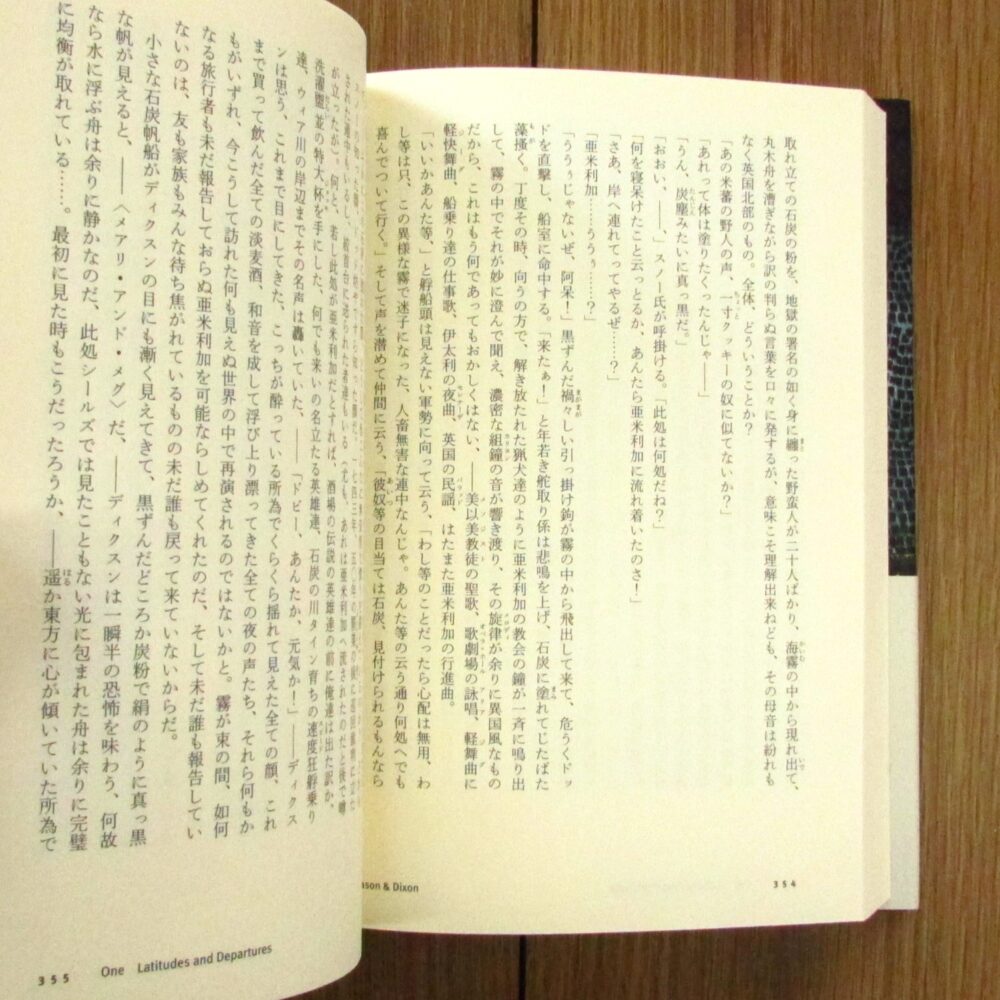 取れ立ての石炭の粉を、地獄の署名の如く身に纏った野蛮人が二十人ばかり、海霧の中から現れ出て、
丸木舟を漕ぎながら訳の判らぬ言葉を口々に発するが、意味こそ理解出来ねども、その母音は紛れも
なく英国北部のもの。全体、どういうことか?
「あの米蕃の野人の声、一寸クッキーの奴に似てないか?」
「あれって体は塗りたくったんじゃ――」
「うん、炭塵みたいに真っ黒だ。」
「おおい、――、」スノー氏が呼掛ける。「此処は何処だね?」
「何を寝呆けたこと云っとるか、あんたら亜米利加に流れ着いたのさ!」
「さあ、岸へ連れてってやるぜ……?」
「亜米利加……うぅぅ……?」
「うぅぅじゃないぜ、阿呆!」黒ずんだ禍々しい引っ掛け鉤が霧の中から飛出して来て、危うくドッ
ドを直撃し、船室に命中する。「来たぁ!」と年若き舵取り係は悲鳴を上げ、石炭に塗れてじたばた
藻掻く。丁度その時、向うの方で、解き放たれた猟犬達のように亜米利加の教会の鐘が一斉に鳴り出
して、霧の中でそれが妙に澄んで聞え、濃密な組鐘の音が響き渡り、その旋律が余りに異国風なもの
だから、これはもう何であってもおかしくはない、――美以美教徒の聖歌、歌劇場の詠唱、軽舞曲に
軽快舞曲、船乗り達の仕事歌、伊太利の夜曲、英国の民謡、はたまた亜米利加の行進曲。
「いいかあんた等、」と艀船頭は見えない軍勢に向って云う、「わし等のことだったら心配は無用、わ
し等は只、この異様な霧で迷子になった、人畜無害な連中なんじゃ。あんた等の云う通り何処へでも
喜んでついて行く。」そして声を潜めて仲間に云う、「彼奴等の目当ては石炭、見付けられるもんなら
354
ason & Dixon
が立ったが)。何と、若し此処が亜米利加だとすれば、酒場の伝説の英雄達の前に俺達は出た訳か、
洗濯盥並の特大杯を手にした、何でも来いの名立たる英雄達、石炭の川タイン育ちの速度狂艀乗り
達、ウィア川の岸辺までその名声は轟いていた、――「ドビー、あんたか、元気か!」――ディクス
ンは思う、これまで目にしてきた、こっちが酔っている所為でくらくら揺れて見えた全ての顔、これ
まで買って飲んだ全ての淡麦酒、和音を成して浮び上り漂ってきた全ての夜の声たち、それら何もか
もがいずれ、今こうして訪れた何も見えぬ世界の中で再演されるのではないかと。霧が束の間、如何
なる旅行者も未だ報告しておらぬ亜米利加を可能ならしめてくれたのだ、そして未だ誰も報告してい
ないのは、友も家族もみんな待ち焦がれているものの未だ誰も戻って来ていないからだ。
小さな石炭帆船がディクスンの目にも漸く見えてきて、黒ずんだどころか炭粉で絹のように真っ黒
な帆が見えると、――〈メアリ・アンド・メグ〉だ、――ディクスンは一瞬半の恐怖を味わう、何故
なら水に浮ぶ舟は余りに静かなのだ、此処シールズでは見たこともない光に包まれた舟は余りに完璧
に均衡が取れている……。最初に見た時もこうだったろうか、――遥か東方に心が傾いていた所為で
355 One Latitudes and Departures